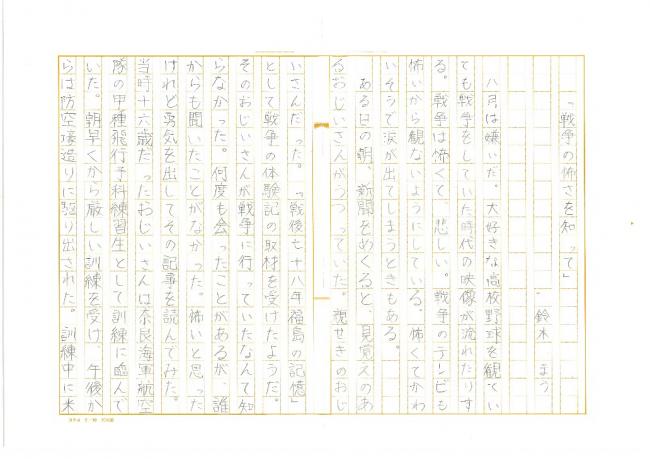 「戦争の怖さを知って」
鈴木 まう
八月は嫌いだ。大好きな高校野球を観てい
ても戦争をしていた時代の映像が流れたりす
る。戦争は怖くて、悲しい。戦争のテレビも
怖いから観ないようにしている。怖くてかわ
いそうで涙が出てしまうときもある。
ある日の朝、新聞をめくると、見覚えのあ
るおじいさんがうつっていた。親せきのおじ
いさんだった。「戦後七十八年福島の記憶」
として戦争の体験記の取材を受けたようだ。
そのおじいさんが戦争に行っていたなんて知
らなかった。何度も会ったことがあるが、誰
からも聞いたことがなかった。怖いと思った
けれど勇気を出してその記事を読んでみた。
当時十六歳だったおじいさんは奈良海軍航空
隊の甲種飛行予科練習生として訓練に臨んで
いた。朝早くから厳しい訓練を受け、午後か
らは防空壕造りに駆り出された。訓練中に米